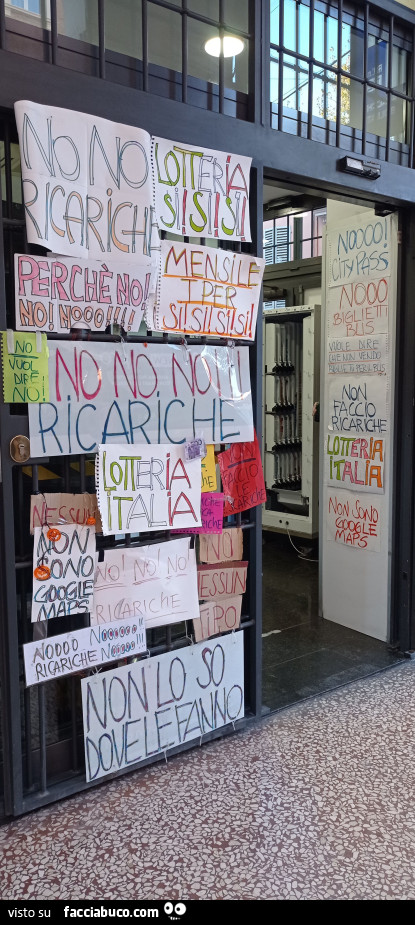 NO NO
RICARICHE
LOTTERIA
SI!SI!SI!
PERCHÈ NO!
NO! NOOO!!!!!
MENSILE
TPER
SI!SI!SI!SI!
NO
VUOL
DIRE
NO!
NO NO NO!!
RICARICHE
LOTTERIA
ITALIA
NESSUN
NON
SONO
GOOGLE
MAPS
NO! NO! NO
RICARICHE
NO
NESSUN
TIPO
NOOOO NOOOOOO
RICARICHE NOOOOO!!!
NON LO SO
DOVE LE FANNO
NOOOO!
CITY PASS
NOOO
BIGLIETTI
BUS
VUOLE DIRE
CHE NON VENDO
BIGLIETTI PER BUS
NON
FACCIO
RICARICHE
LOTTERIA
ITALIA
NON SONO
GOOGLE
MAPS
visto su facciabuco.com